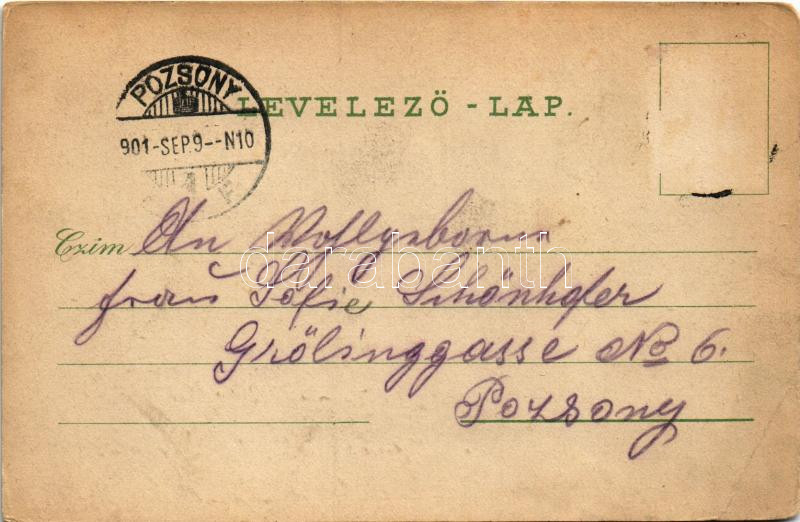 POZSONY
LEVELEZŐ - LAP.
901-SEP.9--N10
F
Czim An Wollgeborne
frau Sofie Schönhofer
darabanth
Grölinggasse No 6.
Pozsony